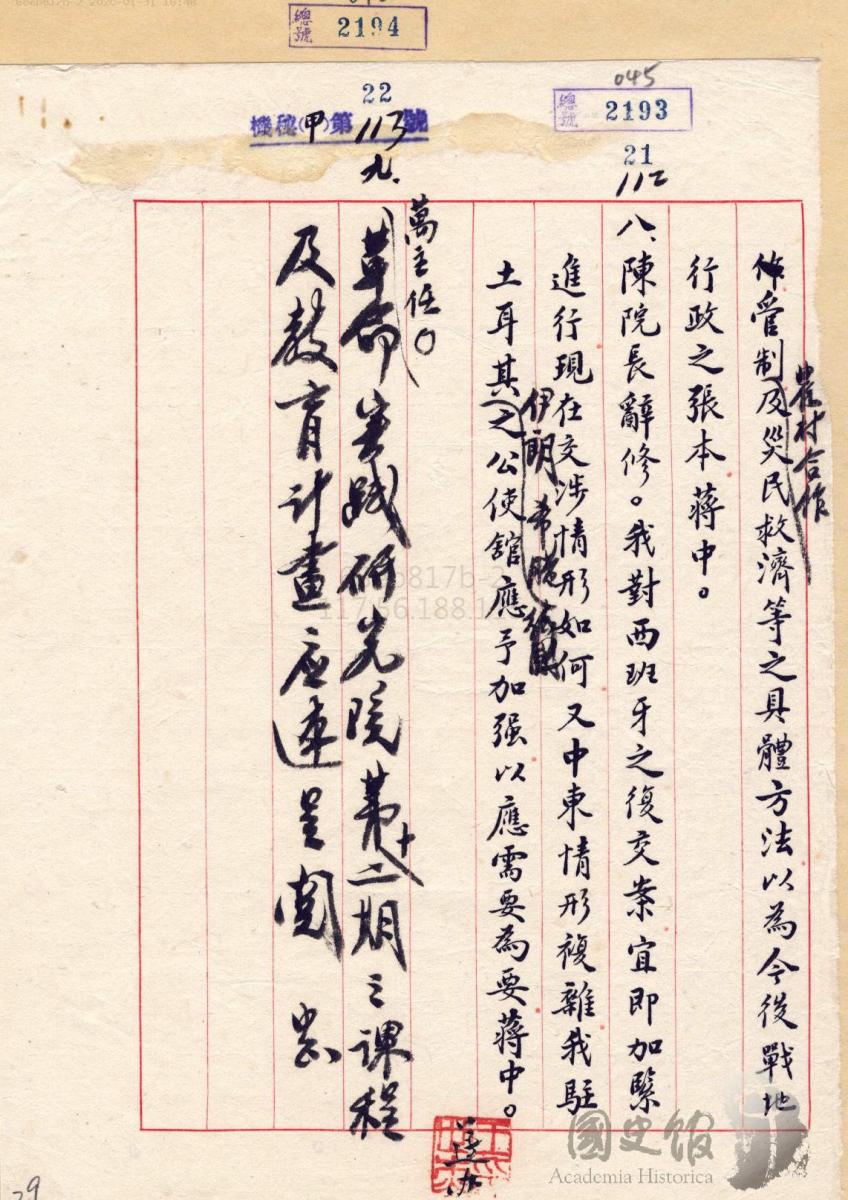 總號 2194
045
總號 2193
22
21
機秘(甲)第113號
112
九.
管制及災民救濟等之具體方法以為今後戰地
農村合作
行政之張本蔣中。
八、陳院長辭修。我對西班牙之復交案宜即加緊
進行現在交涉情形如何又中東情形複雜我駐
伊朗希臘
土耳其之公使館應予加强以應需要為要蔣中。
萬主任。
革命實踐研究院第十二期之課程
及教育計畫应速呈閱
國史館
Academia Historica
29